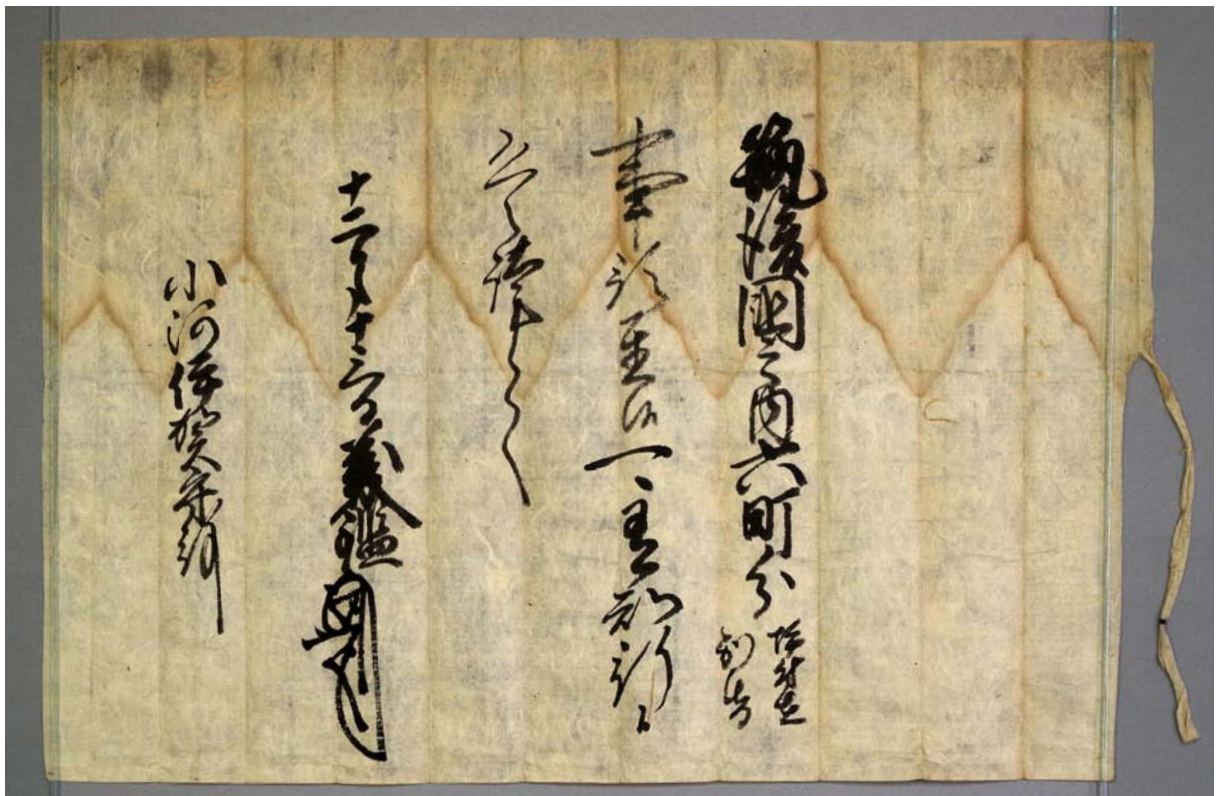 筑後國之内六町分坪付在別紙
事預置候可有知行候
恐々謹言
十二月十三日義鑑
小河伊賀守殿